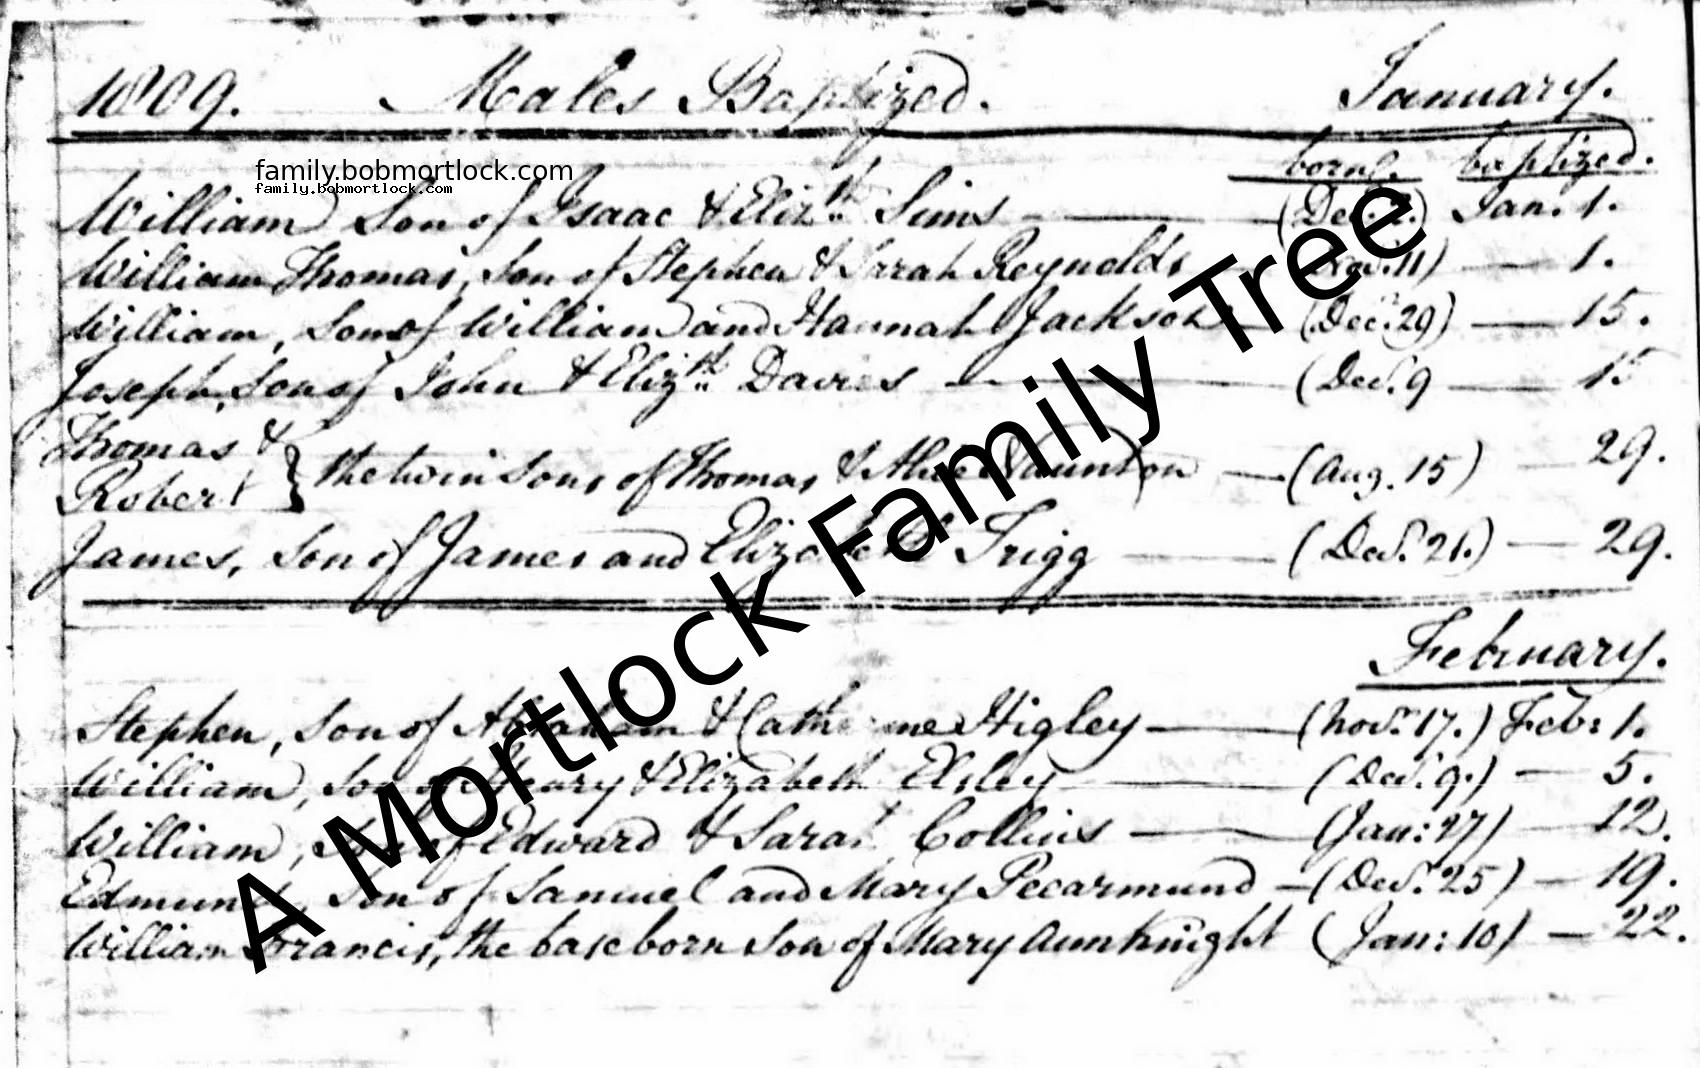 1809. Males Baptized. January.
born. baptized.
family.bobmortlock.com
family.bobmortlock.com
William Son of Isaac & Eliz.th Sims (Dec. ) Jan. 1.
William Thomas, Son of Stephen & Sarah Reynolds (Nov. 11) 1.
William, Son of William and Hannah Jackson (Dec. 29) 15.
Joseph, Son of John & Eliz.th Davies (Dec. 9 15
Thomas &
Robert } the twin Sons of Thomas & Alice Naunton (Aug. 15) 29.
James, Son of James and Elizabeth Trigg (Dec. 21.) 29.
February.
Stephen, Son of Abraham & Catherine Higley (Nov. 17.) Feb: 1.
William, Son of Henry & Elizabeth Elsley (Dec. 9.) 5.
William, Son of Edward & Sarah Collins (Jan: 27) 12.
Edmund, Son of Samuel and Mary Pecarmund (Dec. 25) 19.
William Francis, the base born Son of Mary Ann Knight (Jan: 10) 22.
A Mortlock Family Tree